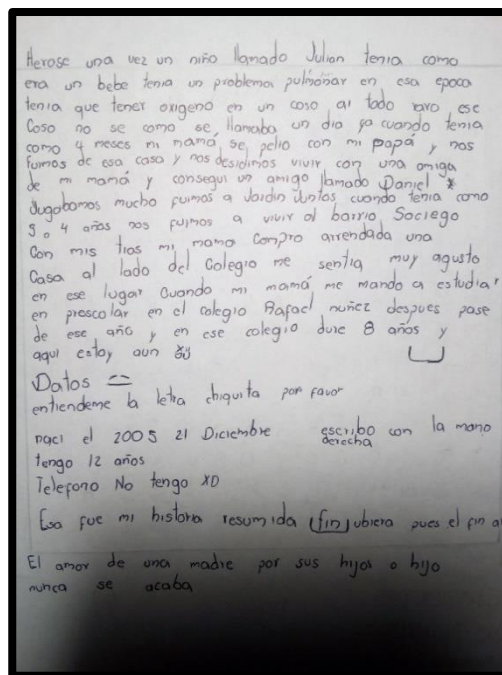 Herose una vez un niño llamado Julian tenia como
era un bebe tenia un problema pulmoñar en esa epoca
tenia que tener oxigeno en un coso al todo raro ese
Coso no se como se llamaba un dia ya cuando tenia
como 4 meses mi mamá se pelio con mi papá y nos
fuimos de esa casa y nos desidimos vivir con una amiga
de mi mamá y consegui un amigo llamado Daniel *
Jugabamos mucho fuimos a Jardin Juntos cuando tenia como
3 o 4 años nos fuimos a vivir al barrio Sociego
Con mis tias mi mama Conpro arrendada una
Casa al lado del Colegio me sentia muy agusto
en ese lugar Cuando mi mamá me mando a estudiar
en prescolar en el colegio Rafael nuñez despues pase
de ese año y en ese colegio dure 8 años y
aqui estoy aun
Datos
entiendeme la letra chiquita por favor
naci el 2005 21 Diciembre escribo con la mano
derecha
tengo 12 años
Telefono No tengo XD
Esa fue mi historia resumida (fin) ubiera pues el fin a
El amor de una madre por sus hijos o hijo
nunca se acaba